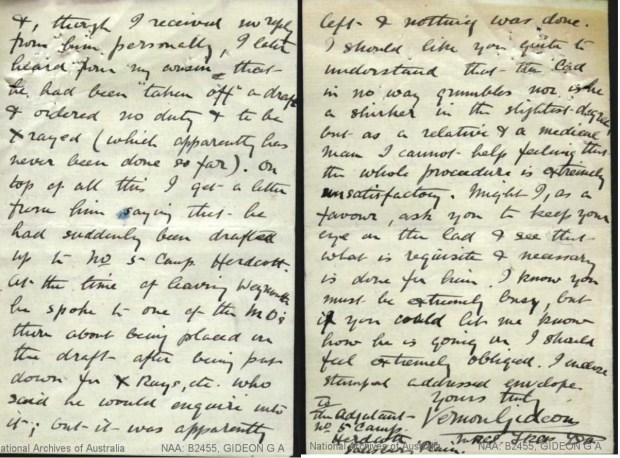 &, though I received no reply
from him personally, I later
heard from my cousin that
he had been "taken off" a draft
& ordered no duty & to be
X rayed (which apparently has
never been done so far). On
top of all this I get a letter
from him saying that he
had suddenly been drafted
up to No 5 Camp Herdcott.
At the time of leaving Weymouth
he spoke to one of the M.O's
there about being placed on
the draft after being put
down for X Rays, etc. who
said he would enquire into
it; but it was apparently
ational Archives of Australia NAA: B2455, GIDEON G A
left & nothing was done.
I should like you quite to
understand that the lad
in no way grumbles nor is he
a shirker in the slightest degree,
but as a relative & a medical
man I cannot help feeling that
the whole procedure is extremely
unsatisfactory. Might I, as a
favour, ask you to keep your
eye on the lad & see that
what is requisite & necessary
is done for him. I know you
must be extremely busy, but
if you could let me know
how he is going on I should
feel extremely obliged. I enclose
stamped addressed envelope.
Yours truly
Vernon Gideon
To
the Adjutant
No 5 Camp.
Herdcott
Plain.
National Archives of Australia NAA: B2455, GIDEON G A